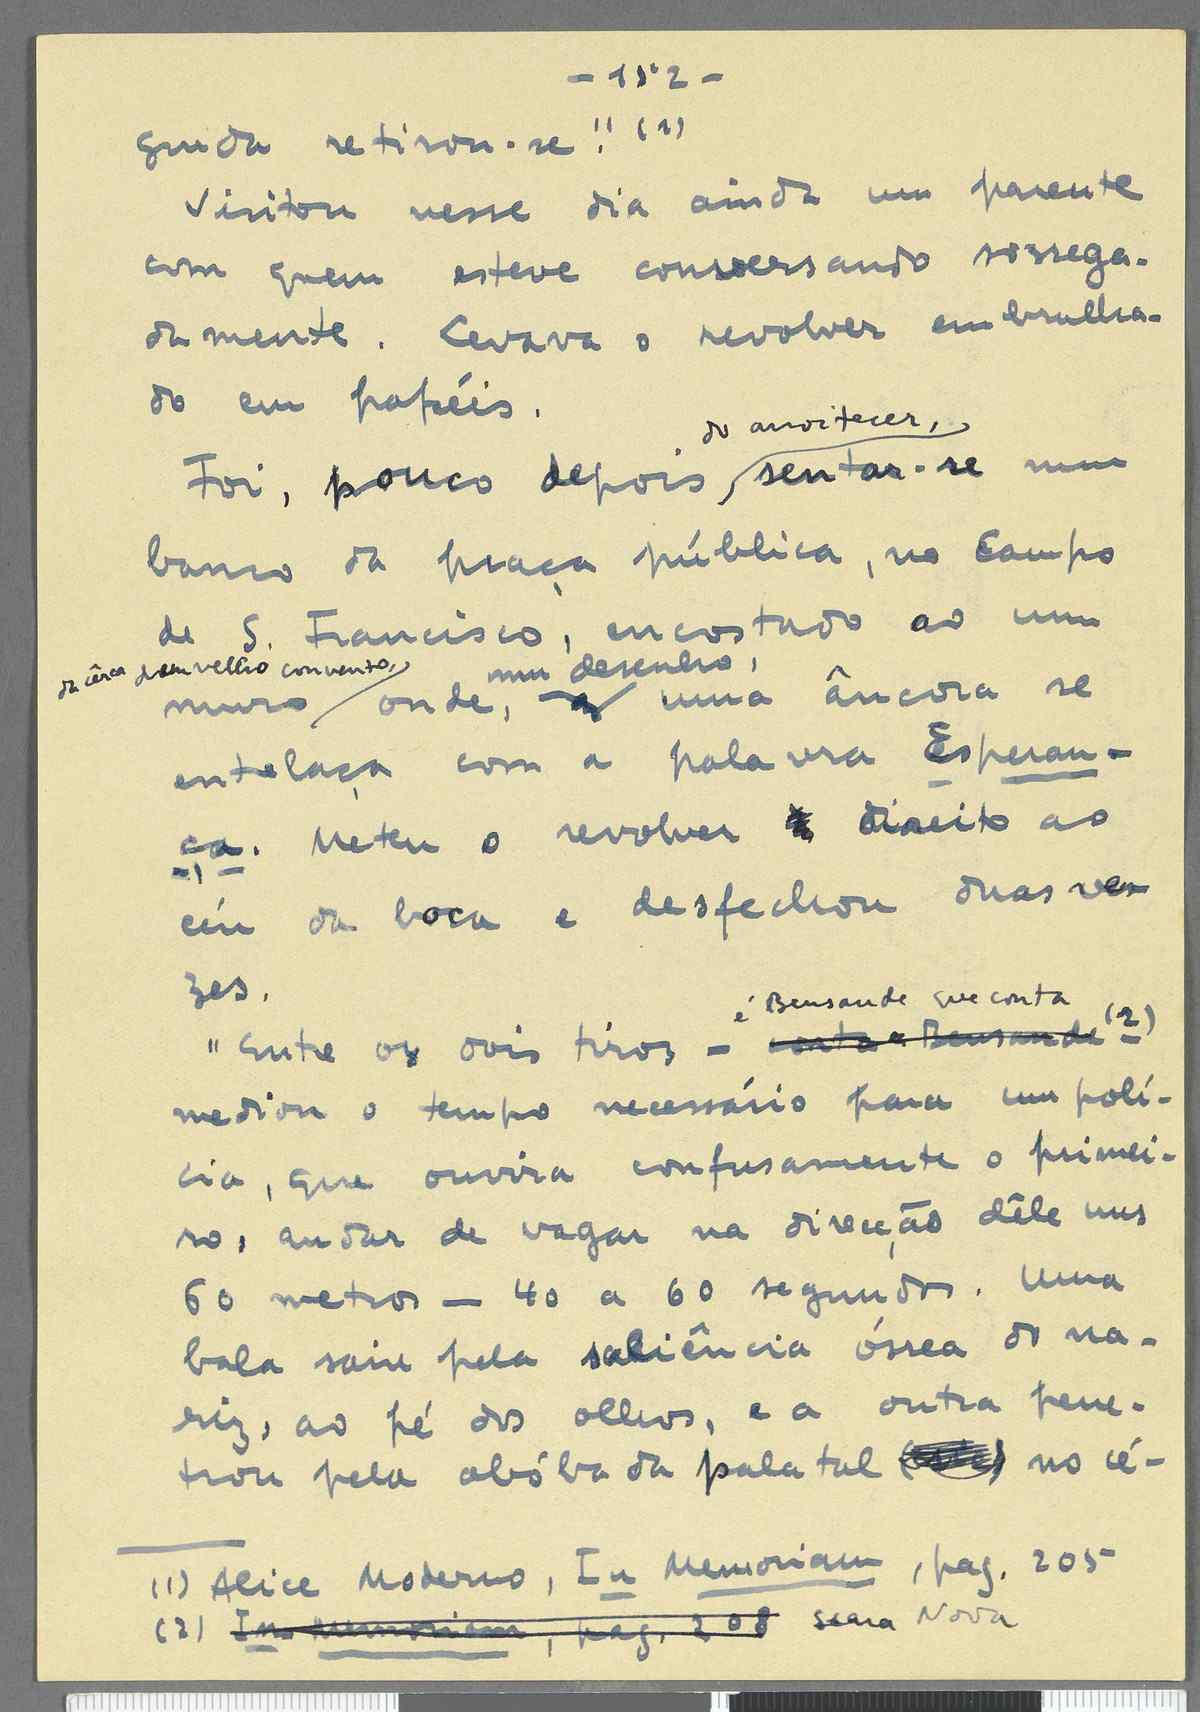 - 152 -
guida retirou-se!! (1)
Visitou nesse dia ainda um parente
com quem esteve conversando sossega-
damente. Levava o revolver embrulha-
do em papéis.
do anoitecer,
Foi, pouco depois sentar-se num
banco da praça pública, no Campo
de S. Francisco, encostado ao um
da cêrca dum velho convento,
num desenho,
muro onde, uma âncora se
entrelaça com a palavra Esperan-
ça. Meteu o revolver direito ao
céu da boca e desfechou duas ve-
zes.
é Bensaude que conta
"Entre os dois tiros - conta Bensaude (2)
mediou o tempo necessário para um polí-
cia, que ouvira confusamente o primei-
ro, andar de vagar na direcção dêle uns
60 metros — 40 a 60 segundos. Uma
bala saiu pela saliência óssea do na-
riz, ao pé dos olhos, e a outra pene-
trou pela abóbada palatal no cé-
(1) Alice Moderno, In Memoriam, pag. 205
(2) In Memoriam, pag. 208 Seara Nova